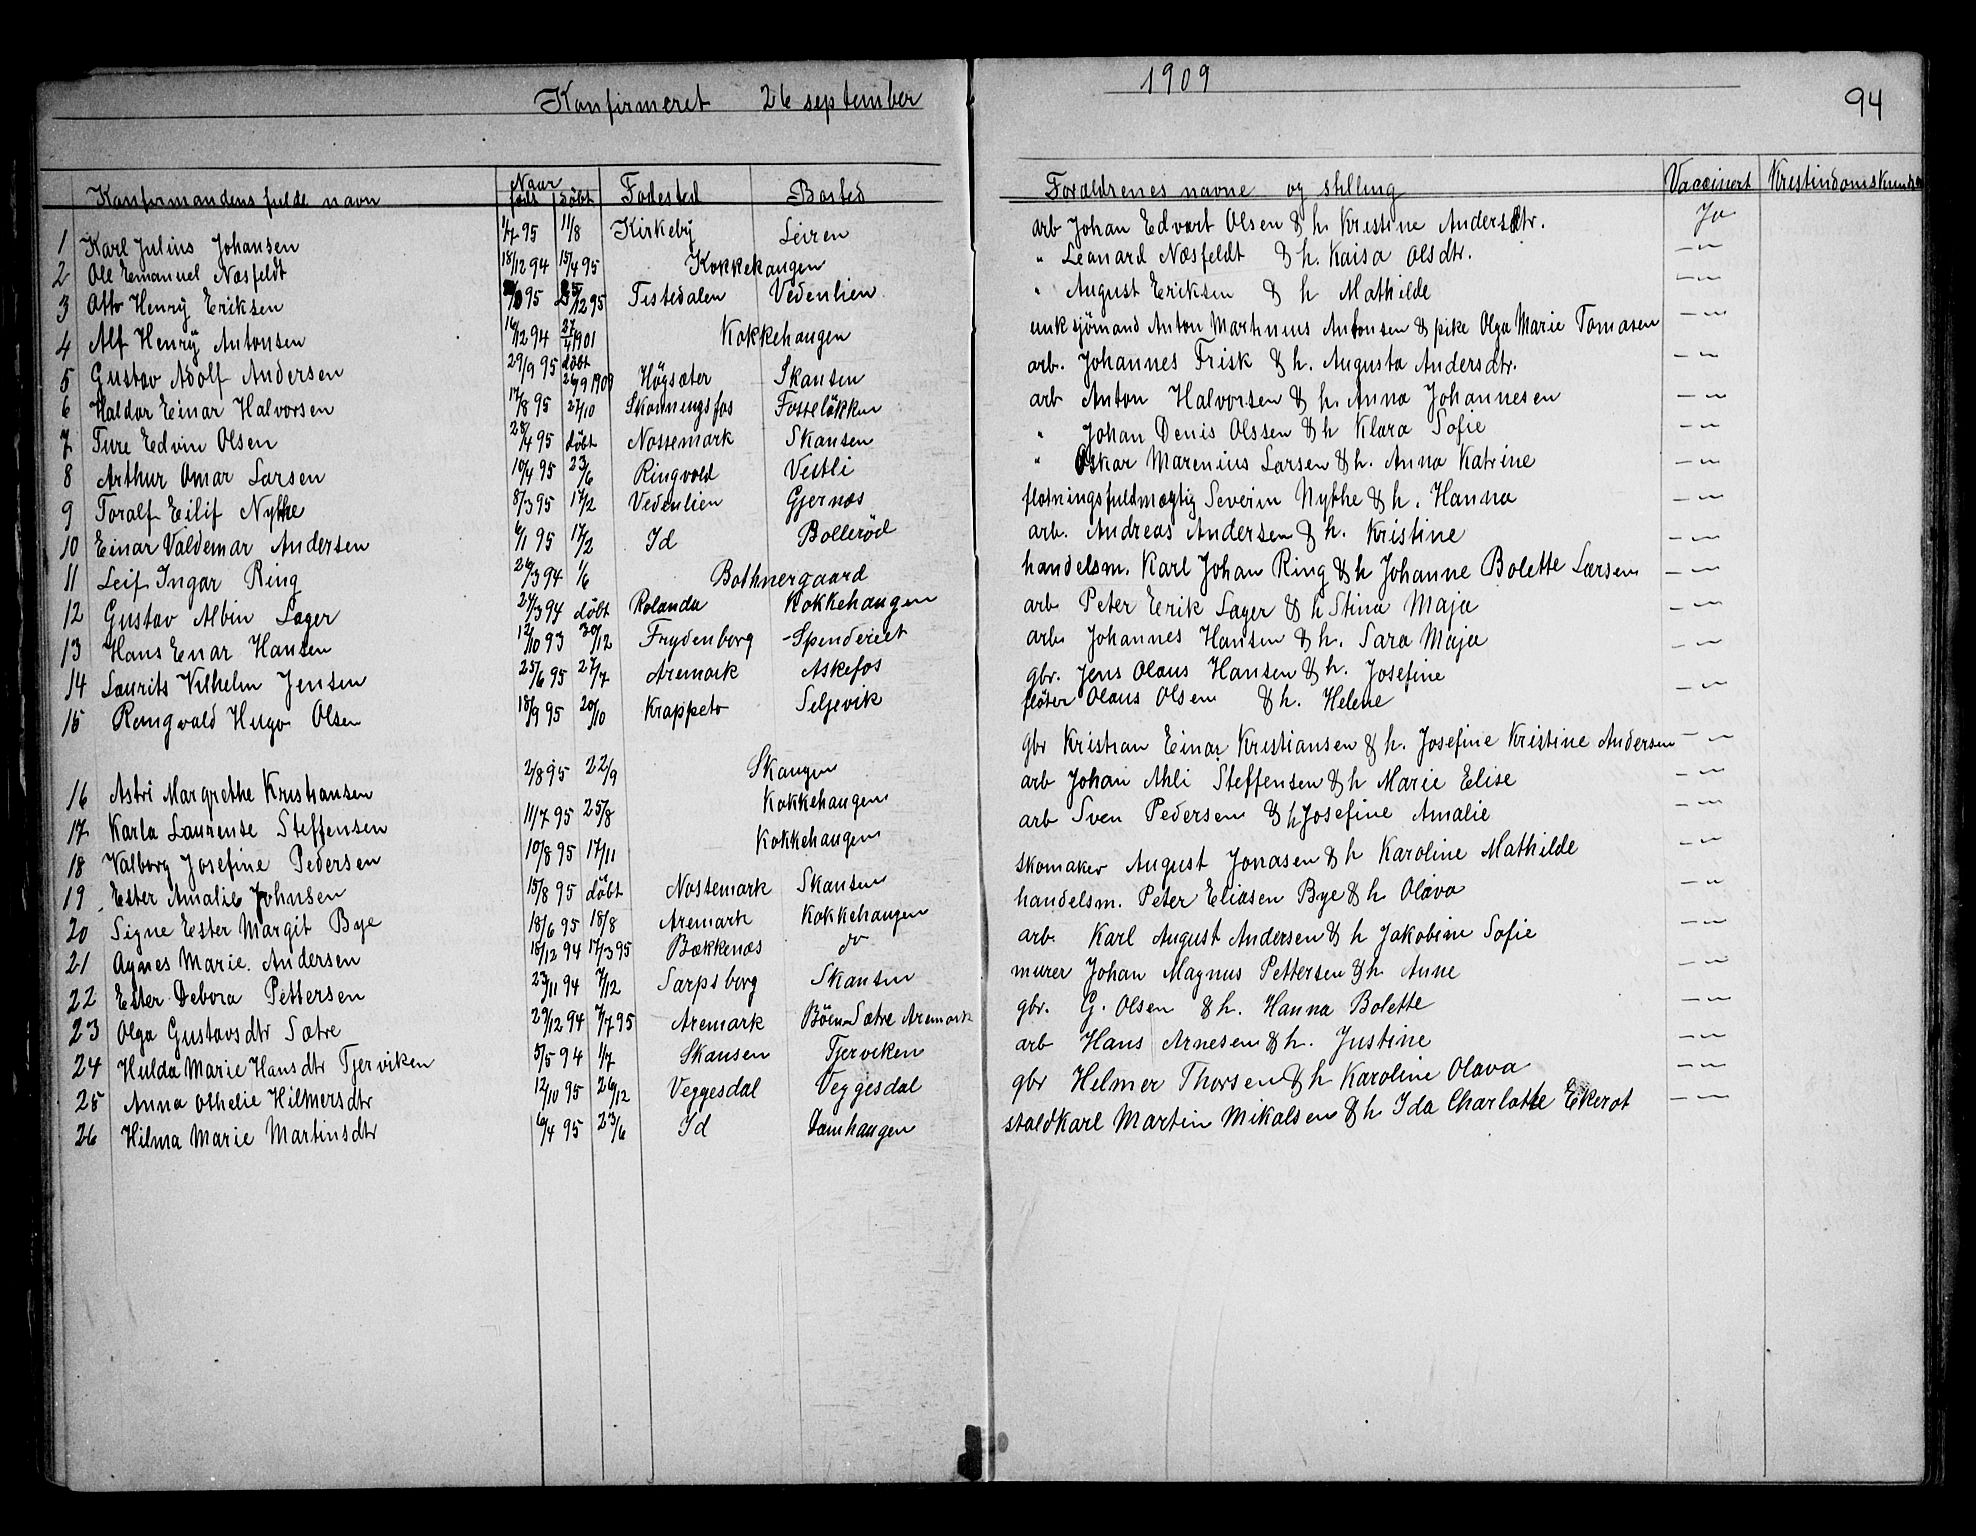 Konfirmeret 26 september 1909
94
Konfirmandens fulde navn | Naar født | døbt | Fødested | Bosted | Forældrenes navne og stilling | Vaccinert | Kristindomskund
1 Karl Julius Johansen 1/7 95 11/8 Kirkeby Leiren arb Johan Edvart Olsen & h. Kristine Andersdtr. Ja
2 Ole Emanuel Næsfeldt 18/12 94 15/4 95 Kokkehaugen " Leonard Næsfeldt & h. Kaisa Olsdtr. — " —
3 Otto Henry Eriksen 95 25/12 95 Tistedalen Vedenlien " August Eriksen & h Mathilde — " —
4 Alf Henrÿ Antonsen 16/12 94 27/4 1901 Kokkehaugen unk sjömand Anton Martinius Antonsen & pike Olga Marie Tomasen — " —
5 Gustav Adolf Andersen 29/9 95 döbt 26/9 1909 Högsæter Skansen arb. Johannes Frisk & h. Augusta Andersdtr. — " —
6 Haldor Einar Halvorsen 17/8 95 27/10 Skonningsfos Fosseløkken arb Anton Halvorsen & h. Anna Johannesen — " —
7 Ture Edvin Olsen 28/4 95 döbt Nossemark Skansen " Johan Denis Olssen & h Klara Sofie — " —
8 Arthur Omar Larsen 10/4 95 23/6 Ringvold Vestli " Oskar Marenius Larsen & h. Anna Katrine — " —
9 Toralf Eilif Nythe 8/3 95 17/2 Vedenlien Gjernæs fløtningsfuldmægtig Severin Nythe & h. Hanna — " —
10 Einar Valdemar Andersen 6/1 95 17/2 Id Bolleröd arb. Andreas Andersen & h. Kristine — " —
11 Leif Ingar Ring 26/3 94 1/6 Bothnergaard handelsm. Karl Johan Ring & h Johanne Bolette Larsen — " —
12 Gustav Albin Lager 24/3 94 döbt Rolanda Kokkehaugen arb Peter Eerik Lager & h Stina Maja — " —
13 Hans Enar Hansen 12/10 93 30/12 Frydenborg Spenderiet arb. Johannes Hansen & h. Sara Maja — " —
14 Laurits Vilhelm Jensen 25/6 95 27/7 Aremark Askefos gbr. Jens Olaus Hansen & h. Josefine — " —
15 Reingvald Hugo Olsen 18/9 95 20/10 Krappeto Seljevik fløter Olaus Olsen & h. Helene — " —
16 Astri Margrethe Kristiansen 2/8 95 22/9 Skaugen gbr Kristian Einar Kristiansen & h. Josefine Kristine Andersen — " —
17 Karla Laurense Steffensen 11/7 95 25/8 Kokkehaugen arb Johan Ahli Steffensen & h Marie Elise — " —
18 Valborg Josefine Pedersen 10/8 95 17/11 Kokkehaugen arb Sven Pedersen & h Josefine Amalie — " —
19 Ester Amalie Johnsen 15/8 95 döbt Nossemark Skansen skomaker August Jonasen & h Karoline Mathilde — " —
20 Signe Ester Margit Bye 18/6 95 18/8 Aremark Kokkehaugen handelsm. Peter Eliasen Bye & h. Olava — " —
21 Agnes Marie. Andersen 18/12 94 17/3 95 Bækkenæs do arb. Karl August Andersen & h Jakobine Sofie — " —
22 Ester Debora Pettersen 23/11 94 7/12 Sarpsborg Skansen murer Johan Magnus Pettersen & h. Anne — " —
23 Olga Gustavsdtr Sætre 29/12 94 7/7 95 Aremark Böen Sætre Aremark gbr. G. Olsen & h. Hanna Bolette — " —
24 Hulda Marie Hansdtr Tjerviken 5/5 94 1/7 Skansen Tjerviken arb Hans Arnesen & h. Justine — " —
25 Anna Othelie Hilmersdtr 12/10 95 26/12 Veggesdal Veggesdal gbr Helmer Thorsen & h Karoline Olava — " —
26 Hilma Marie Martinsdtr 6/4 95 23/6 Id Damhaugen staldkarl Martin Mikalsen & h Ida Charlotte Ekerot — " —